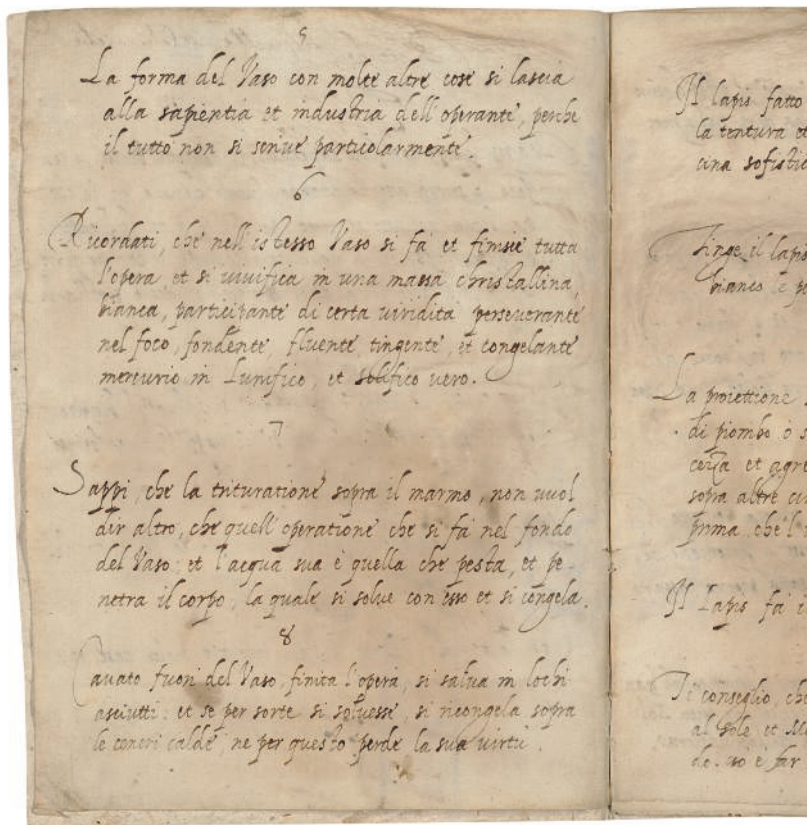 5
La forma del Vaso con molte altre cose si lascia
alla sapientia et industria dell'operante, perche
il tutto non si scriue particolarmente.
6
Ricordati, che nell'istesso Vaso si fà et finisce tutta
l'opera, et si viuifica in una massa christallina,
bianca, participante di certa uiridità perseuerante
nel foco, fondente, fluente, tingente, et congelante
mercurio in Lunifico, et solifico uero.
7
Sappi, che la trituratione sopra il marmo, non uuol
dir altro, che quell'operatione che si fà nel fondo
del Vaso: et l'acqua sua è quella che pesta, et pe-
netra il corpo, la quale si solue con esso et si congela.
8
Cauato fuori del Vaso, finita l'opera, si salua in lochi
asciutti: et se per sorte si soluesse, si ricongela sopra
le ceneri calde, ne per questo perde la sua uirtù.
Il lapis fatto
la tentura et
cina sofistic
Tinge il lapis
bianco è p
La proiettione
di piombo ò s
et agre
sopra altre
prima che l'
Il Lapis fà i
Ti conseglio, che
al sole et
do. far